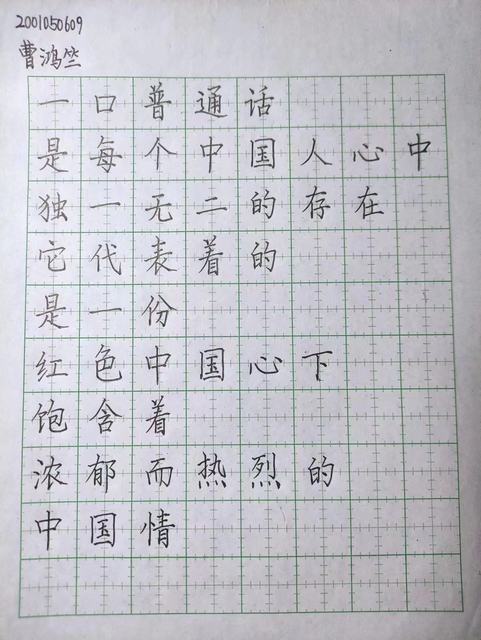 2001050609
曹鸿竺
一口普通话
是每个中国人心中
独一无二的存在
它代表着的
是一份
红色中国心下
饱含着
浓郁而热烈的
中国情